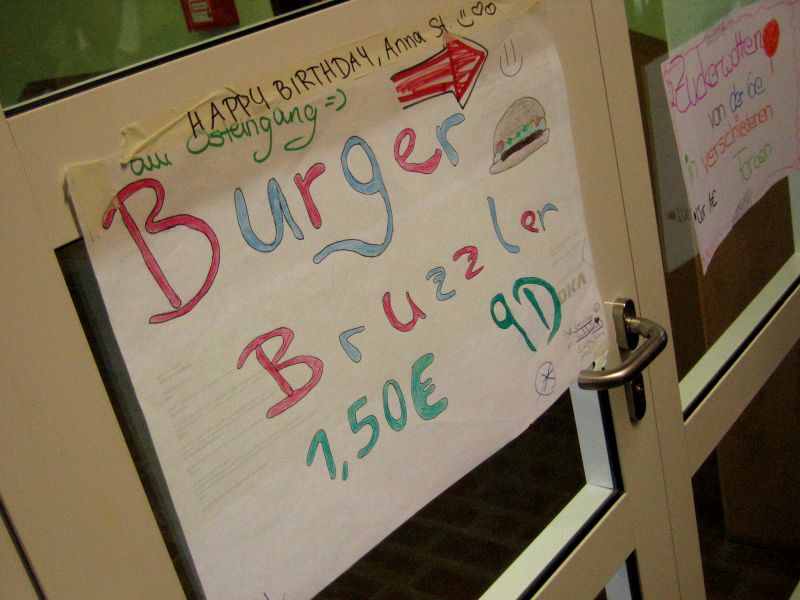 HAPPY BIRTHDAY, Anna St.
am Osteingang =)
Burger
Bruzzler
1,50€
9D
Zuckerwatten
von der 6e
in verschiedenen
Formen